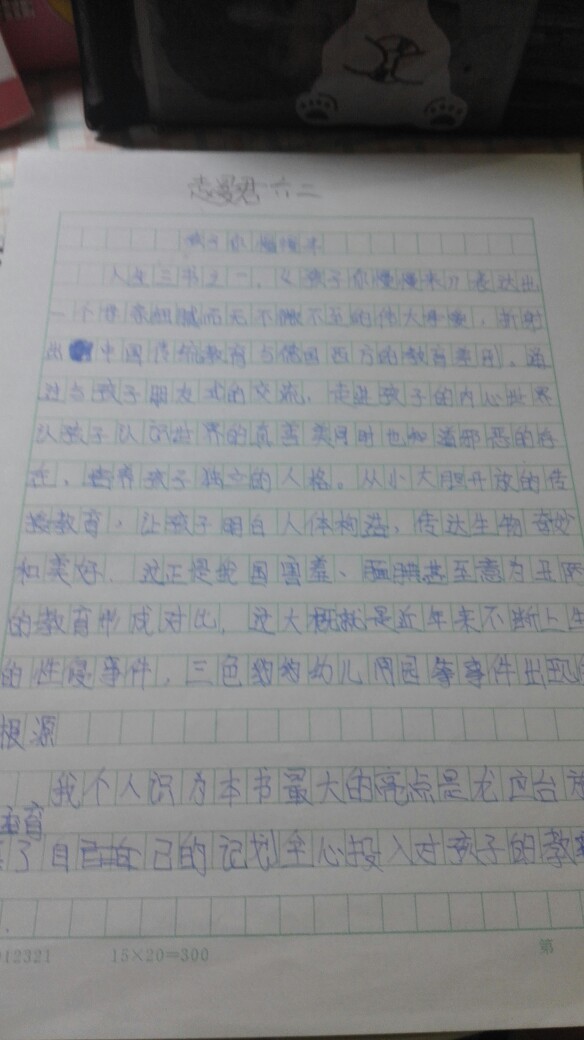 孩子你慢慢来
人生三书之一,《孩子你慢慢来》表达出
一个母亲细腻而无不微不至的伟大母爱,折射
出中国传统教育与德国西方的教育差别。通
过与孩子朋友式的交流,走进孩子的内心世界
认孩子认识世界的真善美同时也知道邪恶的存
在,培养孩子独立的人格。从小大胆开放的传
接教育,让孩子明白人体构造,传达生物奇妙
和美好.这正是我国害羞、腼腆甚至意为丑陋
的教育形成对比,这大概就是近年来不断上
的性侵事件,三色幼儿园等事件出现
根源
我个人识为本书最大的亮点是龙应台
了自己的记划全心投入对孩子的教
12321 15×20=300 第